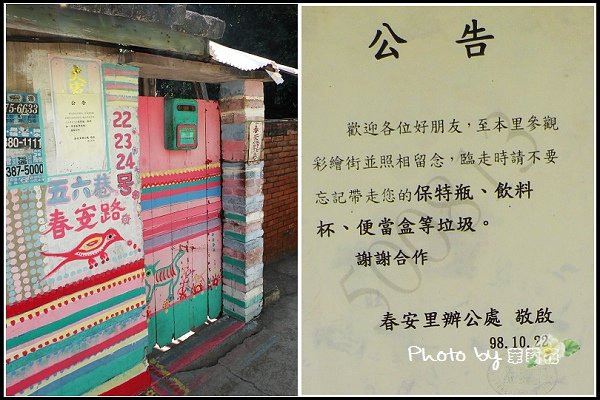 公告
75-6633
380-1111
387-5000
22
23
24號
五六巷
春安路
公告
歡迎各位好朋友，至本里參觀
彩繪街並照相留念，臨走時請不要
忘記帶走您的保特瓶、飲料
杯、便當盒等垃圾。
謝謝合作
春安里辦公處 敬啟
98.10.22
Photo by